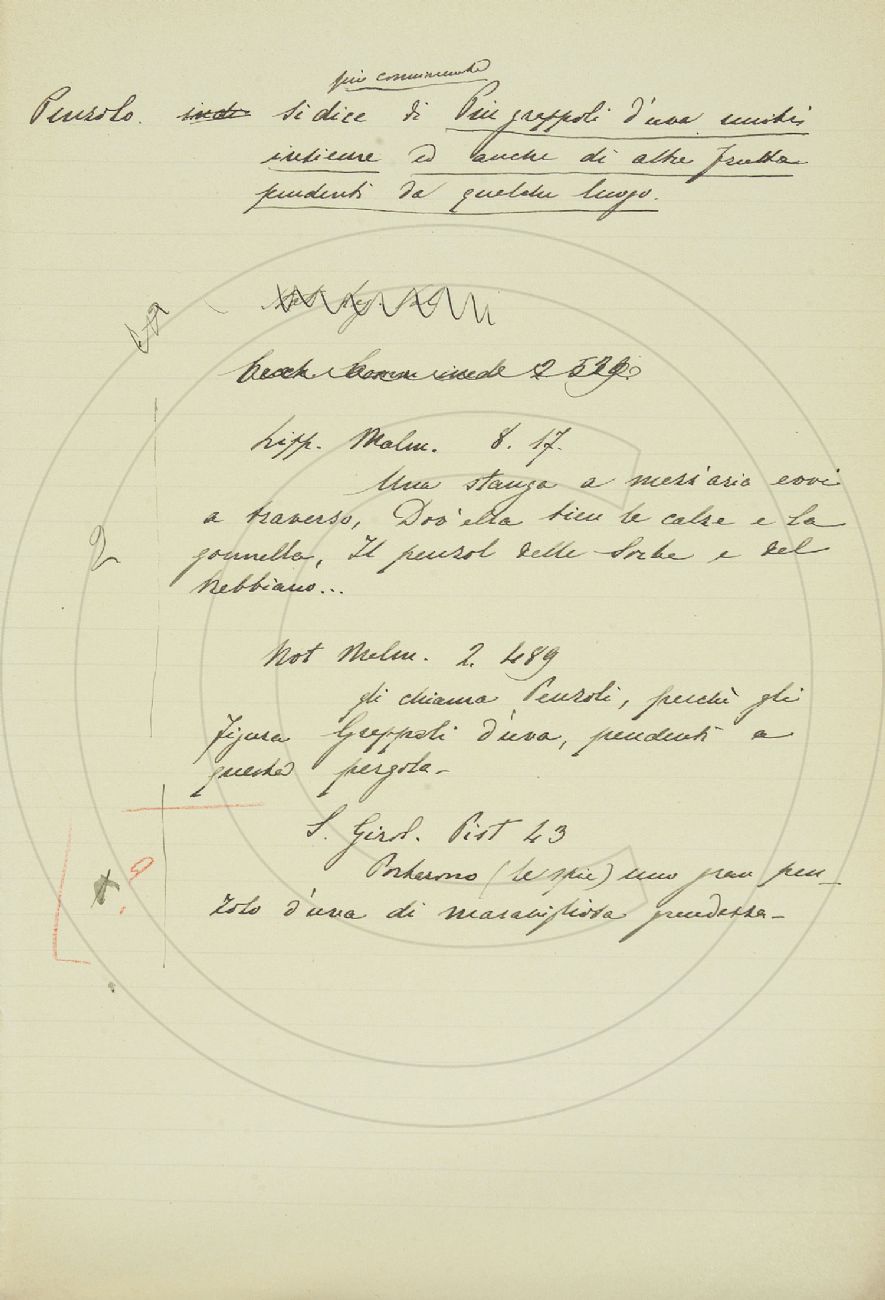 più comunemente
Penzolo. si dice di Più grappoli d'uva uniti
insieme ed anche di altre frutta
pendenti da qualche luogo.
Lipp. Malm. 8. 17.
Una stanga a mezz'aria evvi
a traverso, Dov'ella tien le calze e la
gonnella, Il penzol delle sorbe e del
trebbiano...
Not Malm. 2. 489
gli chiama Penzoli, perchè gli
figura Grappoli d'uva, pendenti a
questa pergola-
2
S. Girol. Pist 43
Portarono (le spie) uno gran pen-
zolo d'uva di maravigliosa grandezza-